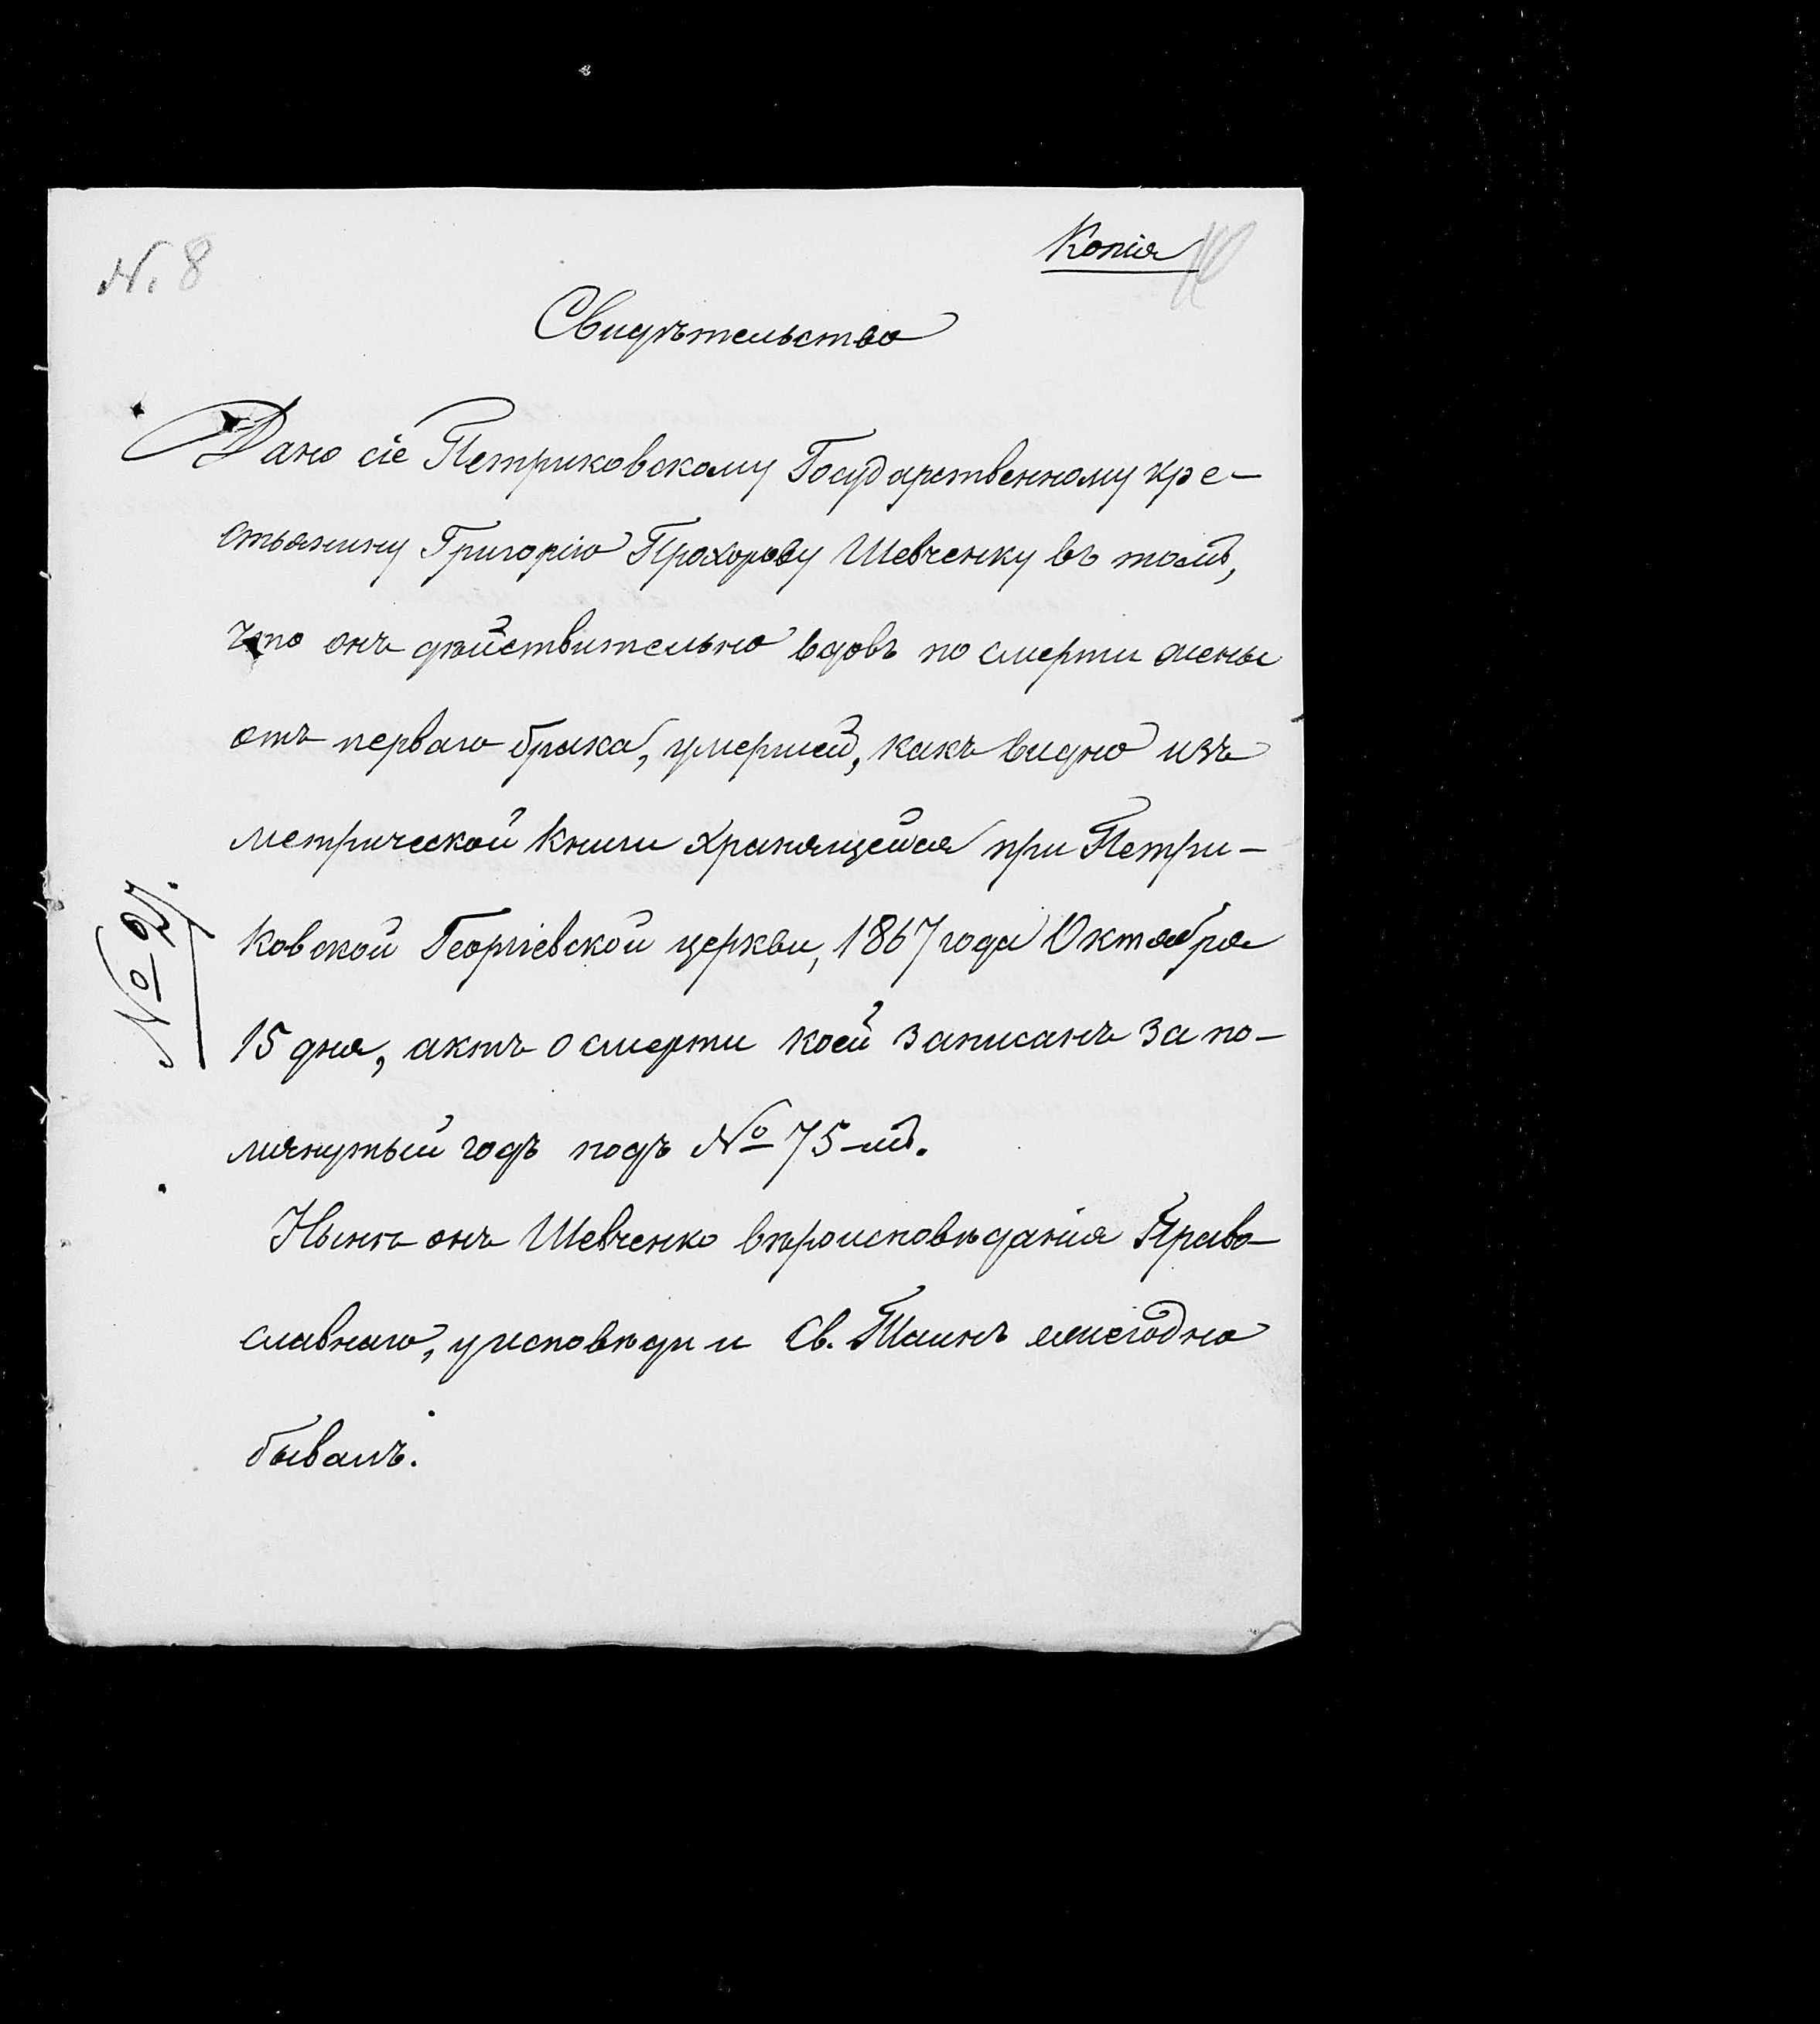 N. 8
Копія
Свидѣтельство
Дано сіе Петриковскому Государственному кре-
стьянину Григорію Прохорову Шевченку въ томъ,
что онъ дѣйствительно вдовъ по смерти жены
отъ перваго брака, умершей, какъ видно изъ
метрической книги хранящейся при Петри-
ковской Георгіевской церкви, 1867 года Октября
15 дня, актъ о смерти коей записанъ за по-
мянутый годъ подъ № 75-мъ.
Нынѣ онъ Шевченко вѣроисповѣданія Право-
славнаго, у исповѣди и Св. Таинъ ежегодно
бывалъ.